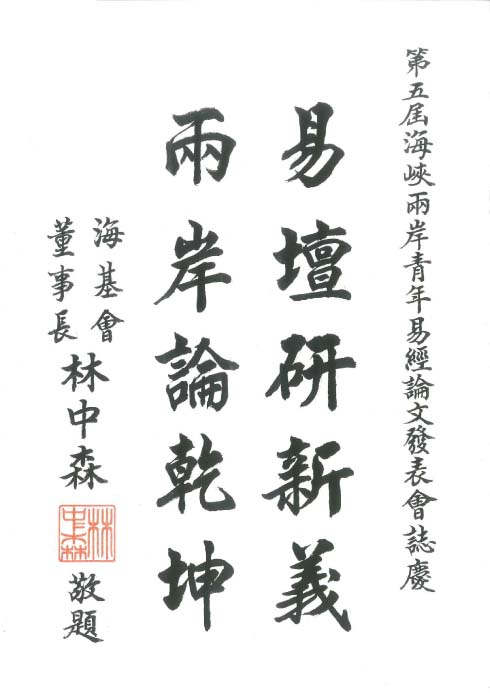 第五屆海峽兩岸青年易經論文發表會誌慶
易壇研新義
兩岸論乾坤
海基會
董事長
林中森
林中森
敬題